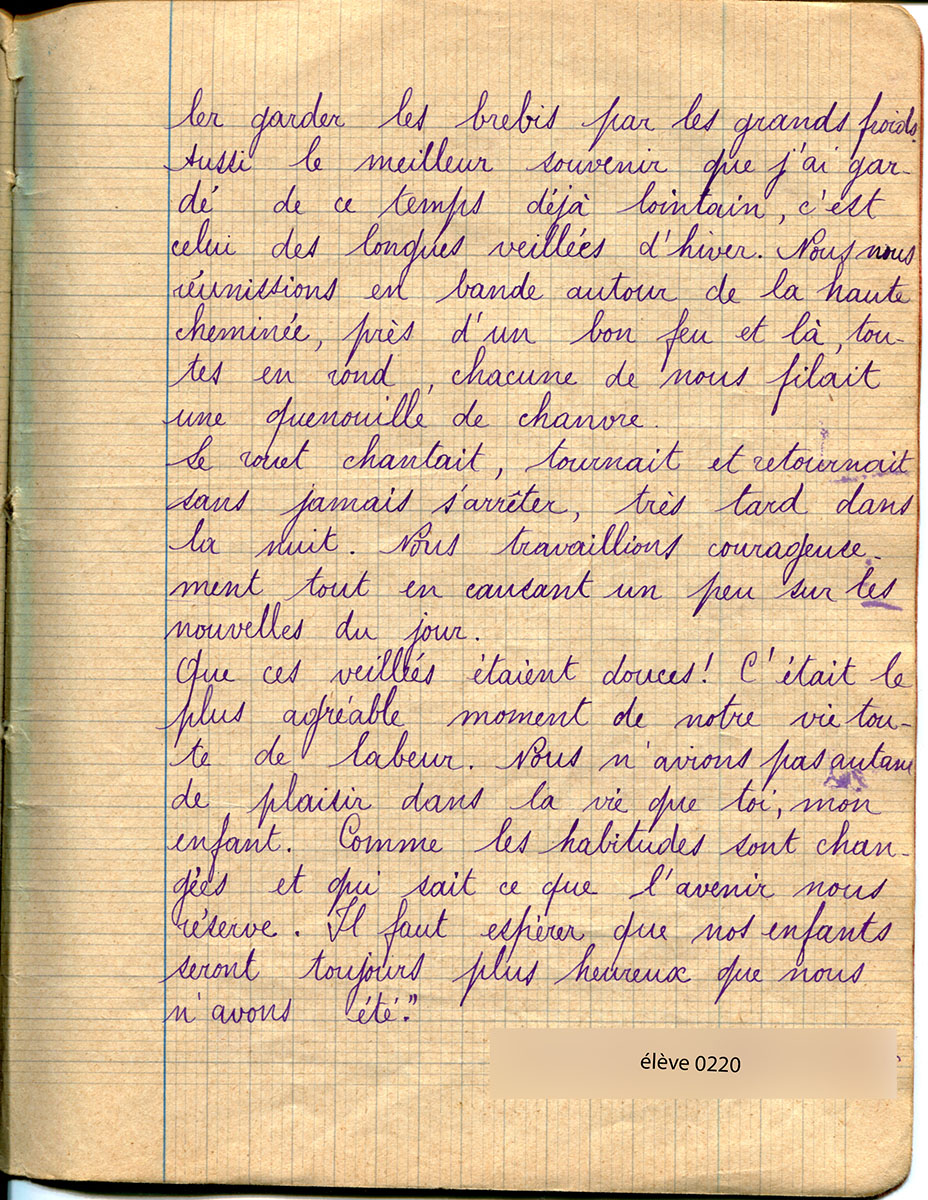 ler garder les brebis par les grands froids.
Aussi le meilleur souvenir que j'ai gar-
dé de ce temps déjà lointain, c'est
celui des longues veillées d'hiver. Nous nous
réunissions en bande autour de la haute
cheminée, près d'un bon feu et là, tou-
tes en rond, chacune de nous filait
une quenouille de chanvre.
Le rouet chantait, tournait et retournait
sans jamais s'arrêter, très tard dans
la nuit. Nous travaillions courageuse-
ment tout en causant un peu sur les
nouvelles du jour.
Que ces veillés étaient douces! C'était le
plus agréable moment de notre vie tou-
te de labeur. Nous n'avions pas autant
de plaisir dans la vie que toi, mon
enfant. Comme les habitudes sont chan-
gées et qui sait ce que l'avenir nous
réserve. Il faut espérer que nos enfants
seront toujours plus heureux que nous
n'avons été."
élève 0220